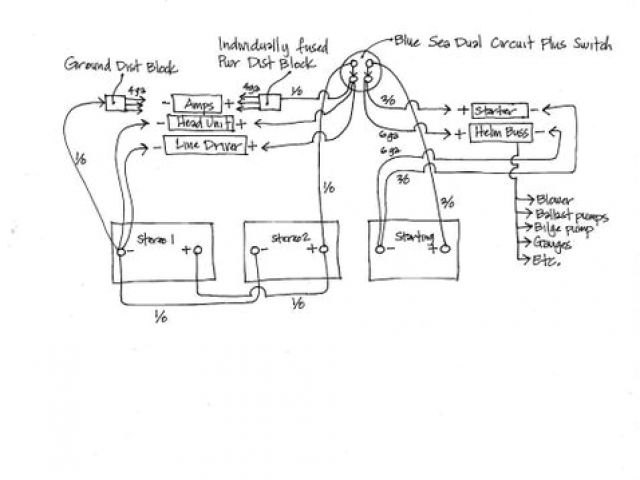 Individually fused
Pwr Dist Block
Blue Sea Dual Circuit Plus Switch
Ground Dist Block
4ga
- Amps +
4ga
1/0
- Head Unit +
- Line Driver +
3/0
+ Starter -
6ga
+ Helm Buss -
6ga
3/0
1/0
1/0
3/0
Blower
Ballast pumps
Bilge pump
Gauges
Etc.
Stereo 1
- +
Stereo 2
- +
Starting
- +
1/0
1/0